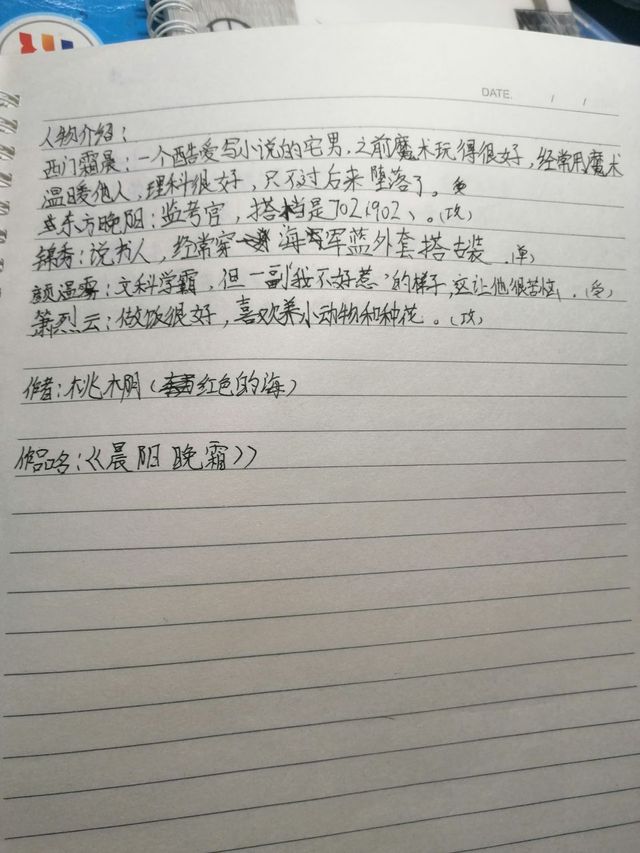 DATE. / /
人物介绍：
西门霜晨：一个酷爱写小说的宅男，之前魔术玩得很好，经常用魔术
温暖他人，理科很好，只不过后来堕落了。受
东方晚阳：监考官，搭档是7021902、。（攻）
锦秀：说书人，经常穿海军蓝外套搭古装 （单）
颜温雾：文科学霸，但一副“我不好惹”的样子，这让他很苦恼。（受）
箫烈云：做饭很好，喜欢养小动物和种花。（攻）
作者：桃木阴（红色的海）
作品名：《晨阳晚霜》